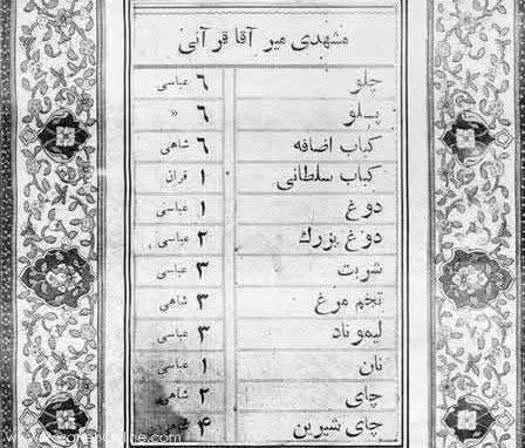 مشهدی میر آقا قرآنی
چلو ٦ عباسی
پلو ٦ »
کباب اضافه ٦ شاهی
کباب سلطانی ۱ قران
دوغ ۱ عباسی
دوغ بزرگ ۲ عباسی
شربت ۳ عباسی
تخم مرغ ۳ شاهی
لیموناد ۳ عباسی
نان ۱ عباسی
چای ۲ شاهی
چای شیرین ۴ شاهی